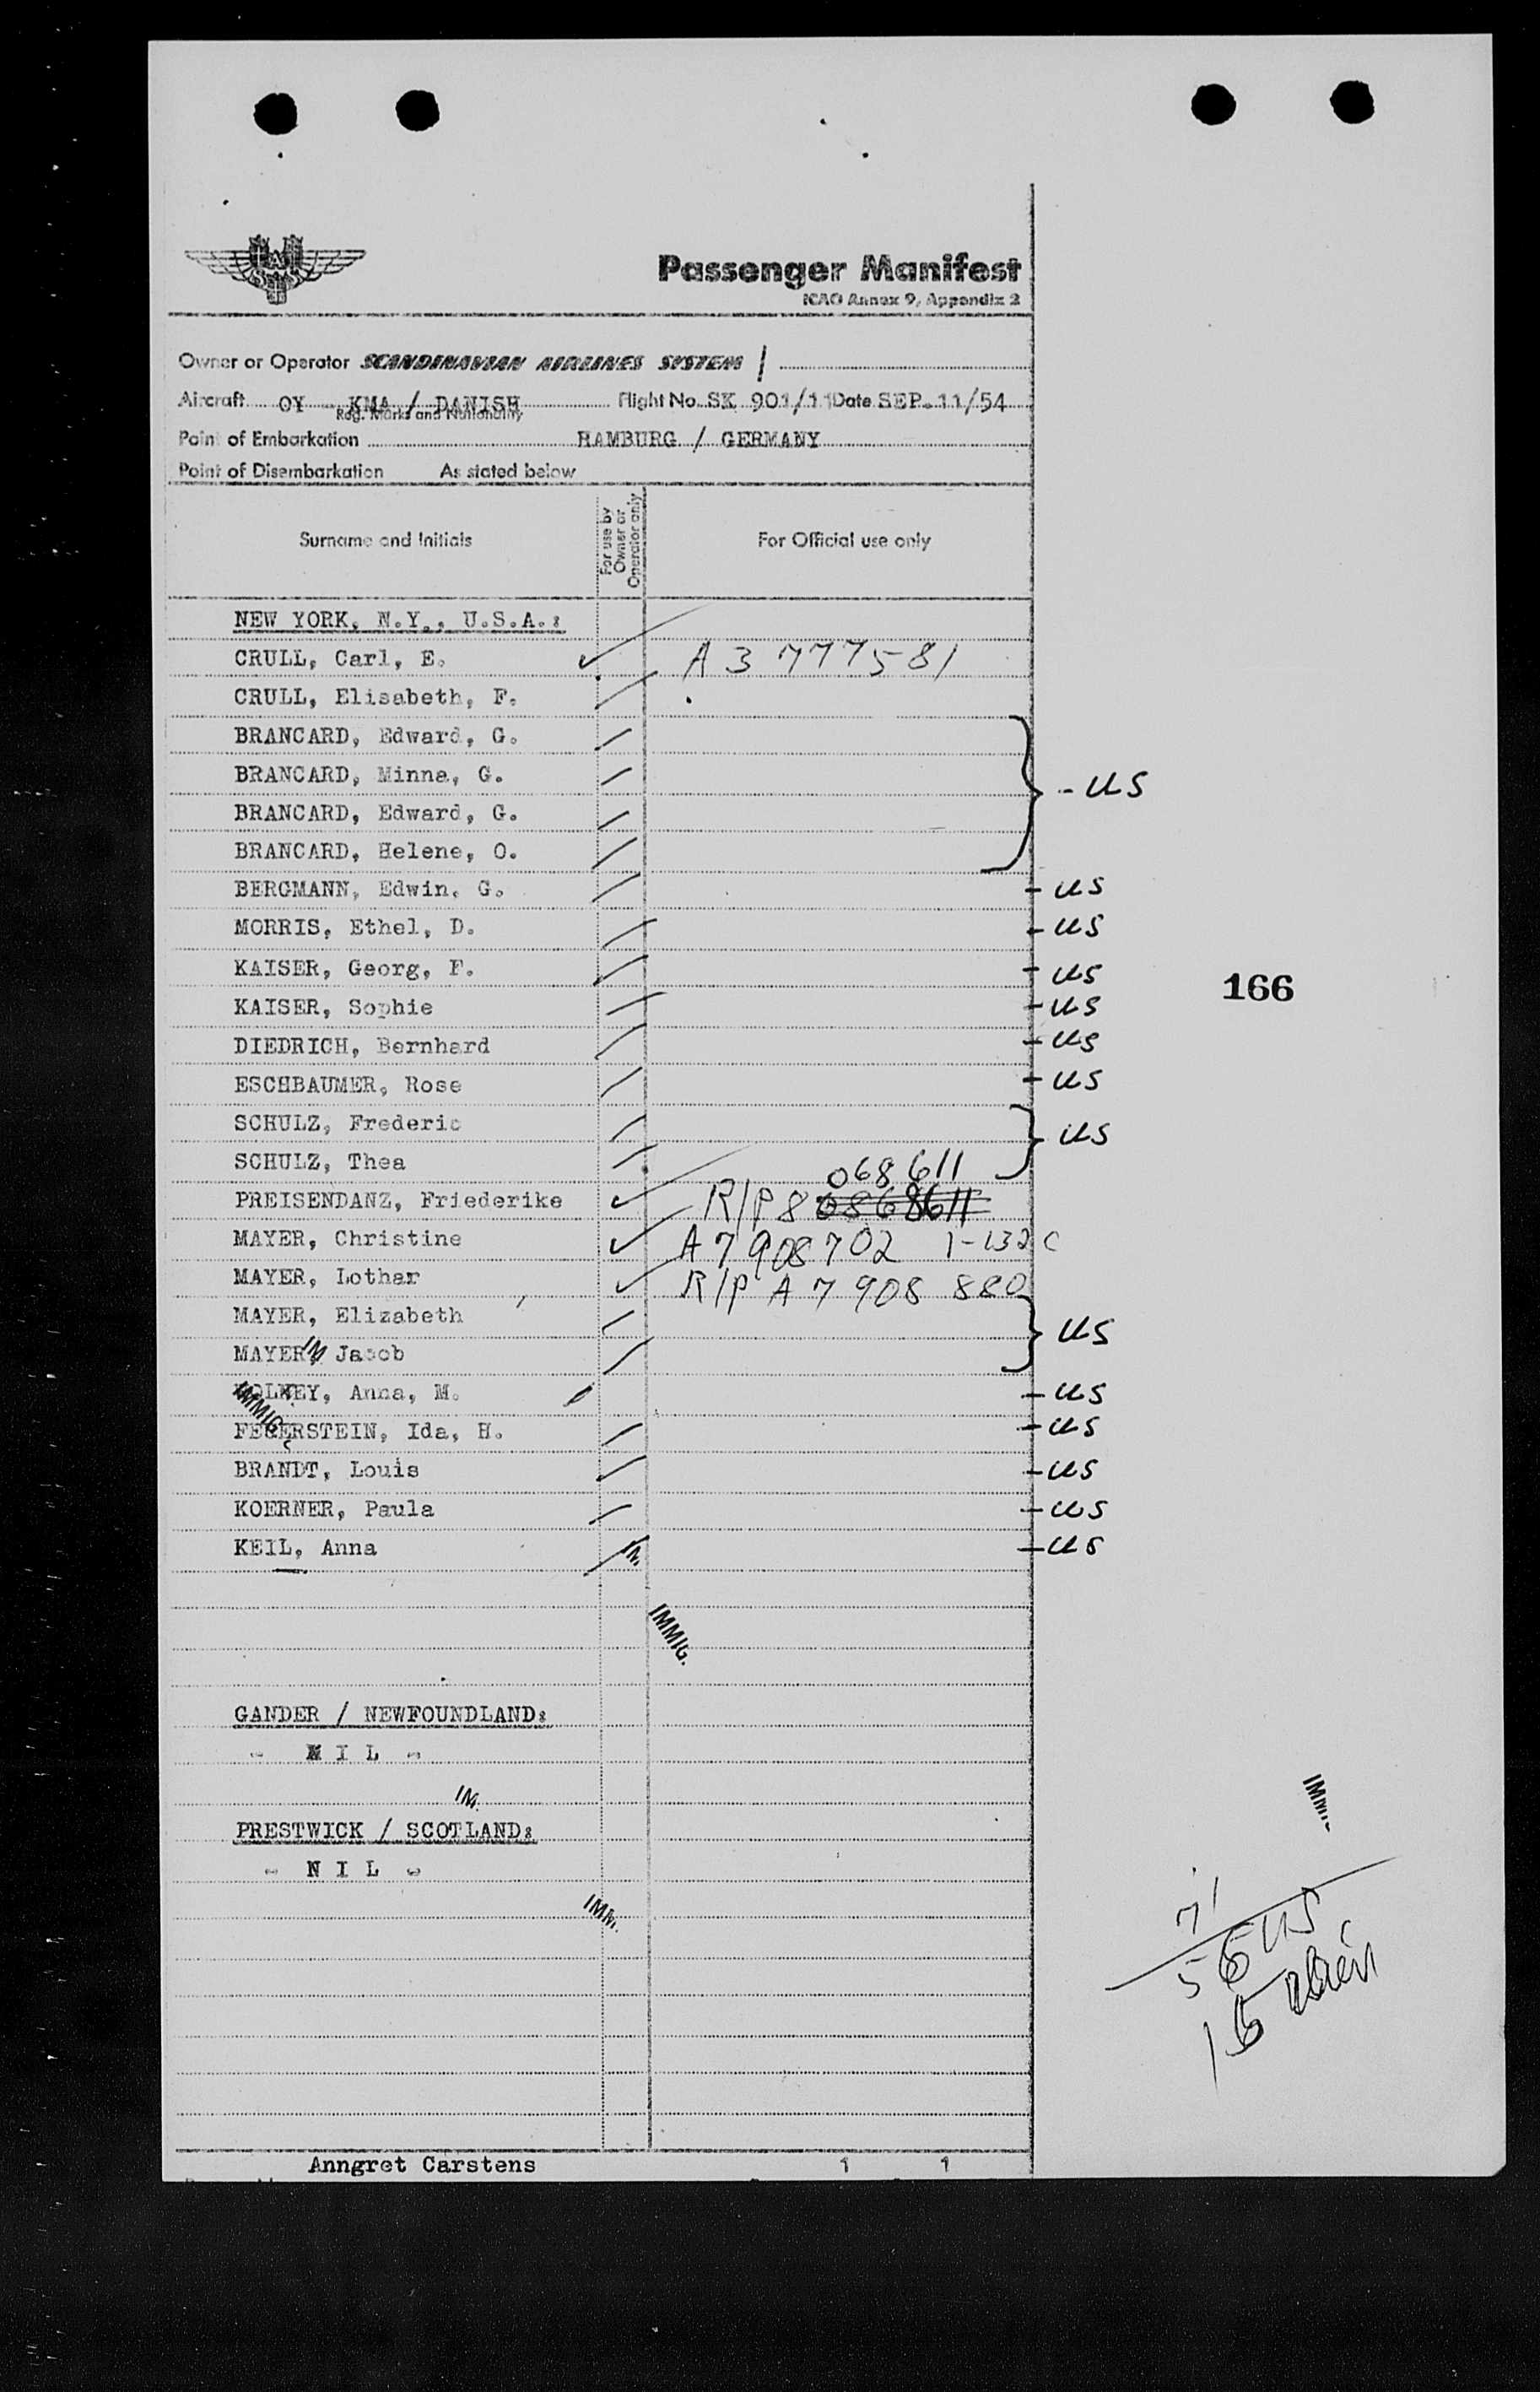 SAS
Passenger Manifest
ICAO Annex 9, Appendix 2
Owner or Operator SCANDINAVIAN AIRLINES SYSTEM /
Aircraft OY - KMA / DANISH Flight No. SK 901/11 Date SEP. 11/54
Reg. Marks and Nationality
Point of Embarkation HAMBURG / GERMANY
Point of Disembarkation As stated below
Surname and Initials For use by Owner or Operator only For Official use only
NEW YORK, N.Y., U.S.A.:
CRULL, Carl, E. A 3 777581
CRULL, Elisabeth, F.
BRANCARD, Edward, G.
BRANCARD, Minna, G. - US
BRANCARD, Edward, G.
BRANCARD, Helene, O.
BERGMANN, Edwin, G. - US
MORRIS, Ethel, D. - US
KAISER, Georg, F. - US
166
KAISER, Sophie - US
DIEDRICH, Bernhard - US
ESCHBAUMER, Rose - US
SCHULZ, Frederic US
SCHULZ, Thea
068 611
PREISENDANZ, Friederike R/P 8 0868611
MAYER, Christine A 7 908 702 1-132 C
MAYER, Lothar R/P A 7 908 880
MAYER, Elizabeth US
MAYER, Jacob
IM
Anna, M. - US
IMMIG.
FEGERSTEIN, Ida, H. - US
BRANDT, Louis - US
KOERNER, Paula - US
KEIL, Anna - US
IM.
IMMIG.
GANDER / NEWFOUNDLAND:
- N I L -
IM.
IMM.
PRESTWICK / SCOTLAND:
- N I L -
IMM.
71
56 US
15 alien
Anngret Carstens 1 1